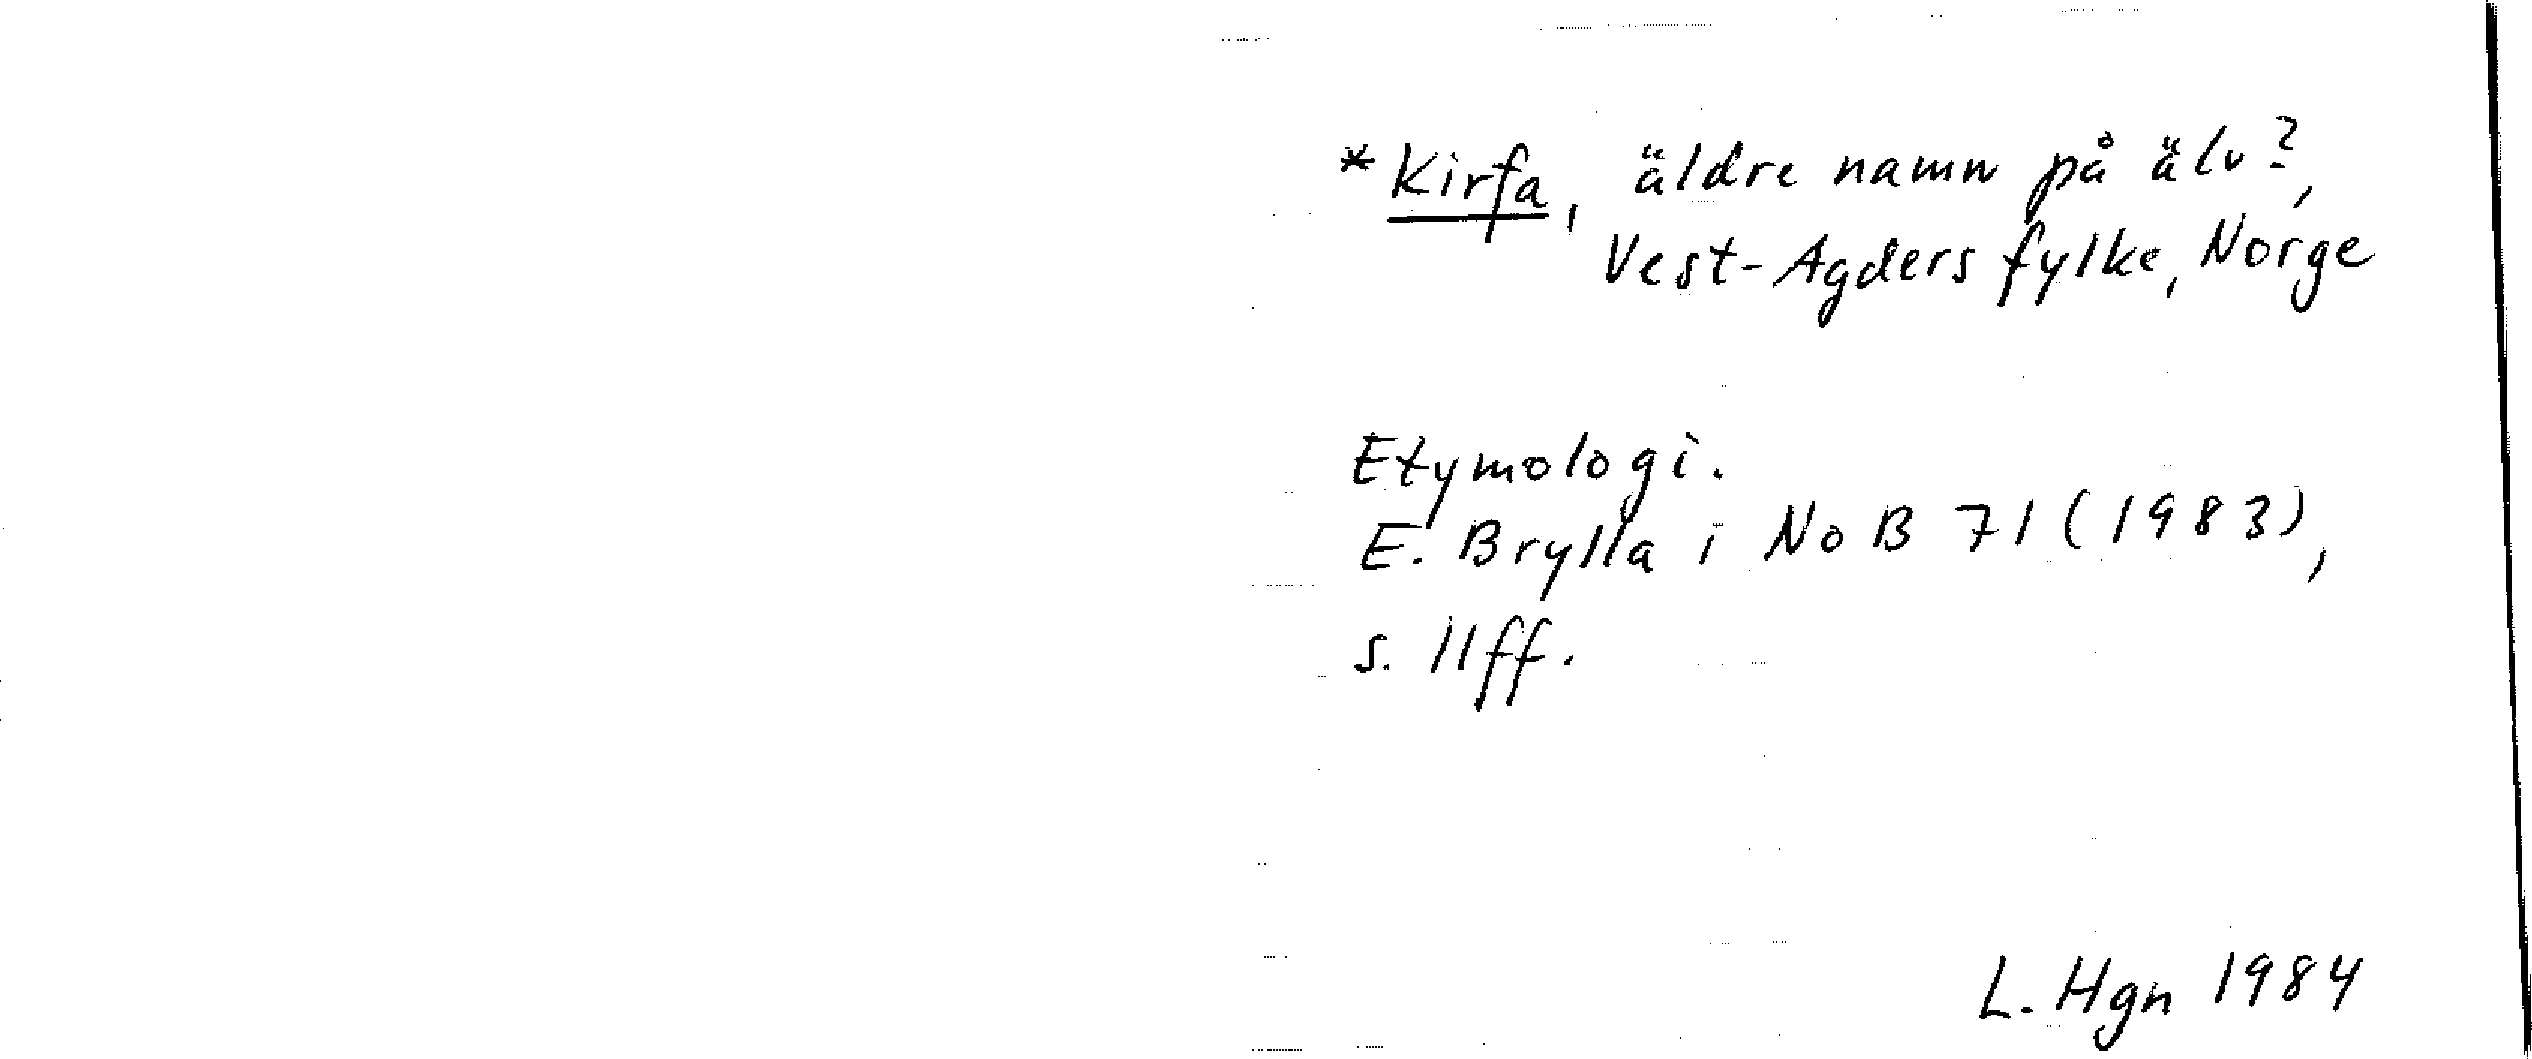 *Kirfa, äldre namn på älv?,
Vest-Agders fylke, Norge
Etymologi.
E. Brylla i NoB 71 (1983),
s. 11ff.
L. Hgn 1984